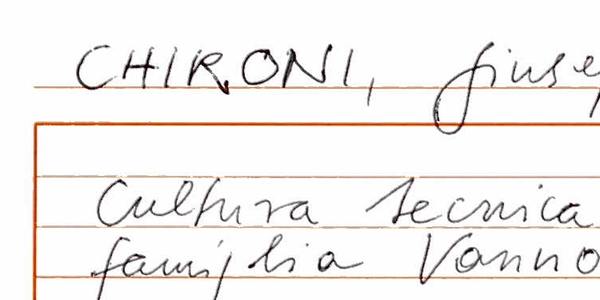 CHIRONI, Giusep
Cultura tecnica
famiglia Vanno